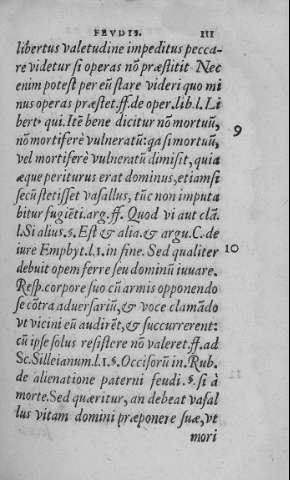 FEVDIS. 111
libertus valetudine impeditus pecca-
re videtur si operas nõ præstitit Nec
enim potest per eũ stare videri quo mi
nus operas præstet.ff.de oper.lib.l.Li
bert⁹ qui. Itẽ bene dicitur nõ mortuũ, 9
nõ mortiferè vulneratũ: qa si mortuũ,
vel mortiferè vulneratũ dimisit, quia
æque periturus erat dominus, etiamsi
secũ stetisset vasallus, tũc non imputa
bitur fugiẽti.arg.ff. Quod vi aut clã.
l.Si alius.§. Est & alia.& argu.C.de
iure Emphyt.l.1.in fine. Sed qualiter 10
debuit opem ferre seu dominũ iuuare.
Resp.corpore suo cũ armis opponendo
se cõtra aduersariũ, & voce clamãdo
vt vicini eũ audirẽt, & succurrerent:
cũ ipse solus resistere nõ valeret.ff.ad
Sc.Silleianum.l.1.§.Occisorũ in.Rub.
de alienatione paterni feudi.§.si à
morte.Sed quæritur, an debeat vasal
lus vitam domini præponere suæ, vt
mori